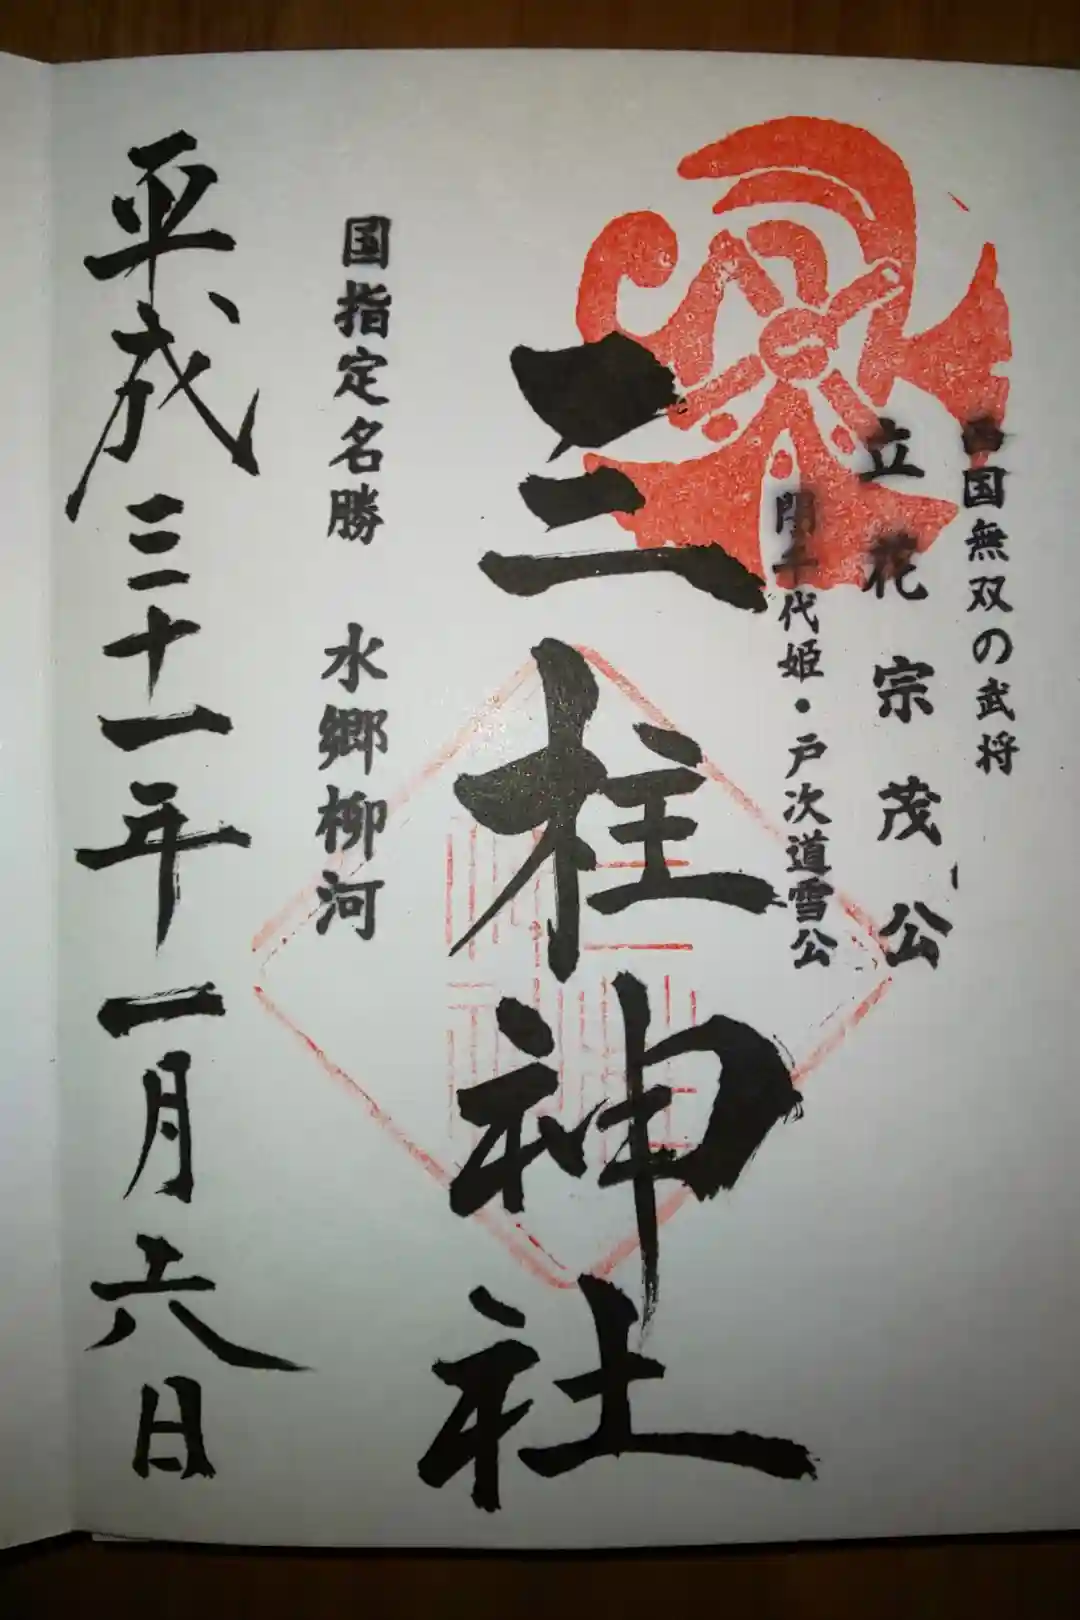 西国無双の武将
立花宗茂公
誾千代姫・戸次道雪公
三柱神社
国指定名勝 水郷柳河
平成三十一年一月六日